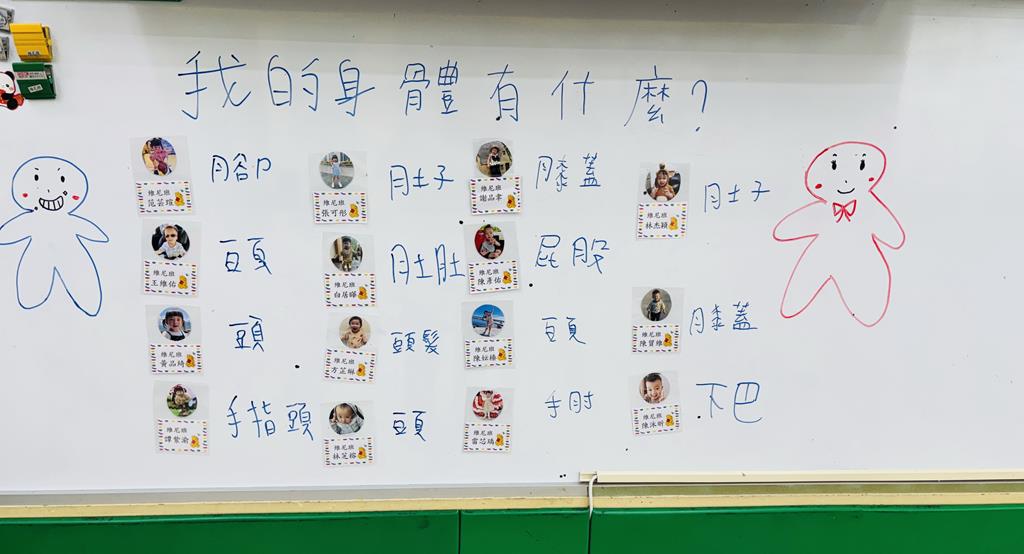 我的身體有什麼?
維尼班
范芸瑄
腳
維尼班
張可彤
肚子
維尼班
謝品聿
膝蓋
維尼班
林杰穎
肚子
維尼班
王維佑
頭
維尼班
白居暉
肚肚
維尼班
陳彥佑
屁股
維尼班
黃品綺
頭
維尼班
方芷綝
頭髮
維尼班
頭
維尼班
陳寶維
膝蓋
維尼班
譚紫渝
手指頭
維尼班
林芝榕
頭
維尼班
雷芯瑀
手肘
維尼班
陳沐昕
下巴